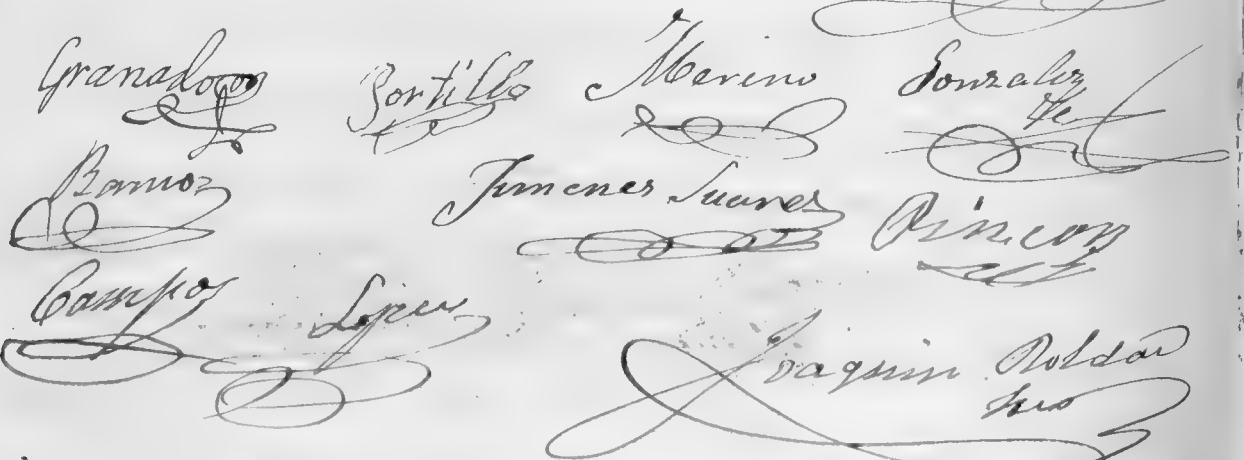 Granados Portillo Merino Gonzalez
Fe
Barrios Jimenes Suares Rincon
Campos Lopez
Joaquin Roldán
Srio